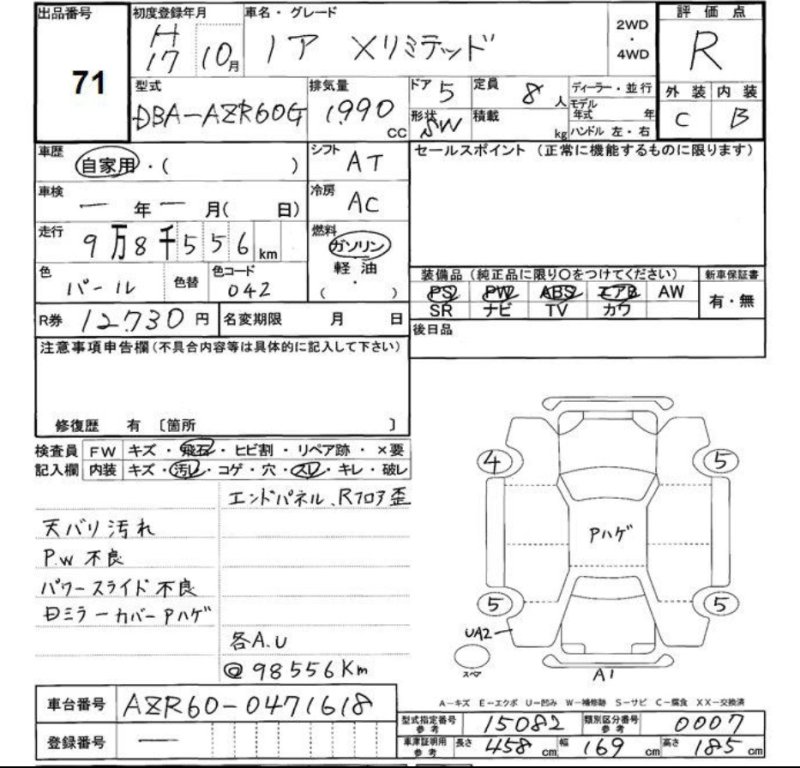 出品番号
71
初度登録年月
H17 10月
車名・グレード
ノア Xリミテッド
2WD
・
4WD
評価点
R
外装 内装
C B
型式
DBA-AZR60G
排気量
1990 CC
ドア 5
形状 SW
定員 8人
積載 kg
ディーラー・並行
モデル年式 年
ハンドル 左・右
車歴
自家用・( )
シフト AT
車検
ー年ー月( 日)
冷房 AC
走行
9万8千556km
燃料
ガソリン
軽油
・
( )
色
パール
色替
色コード
042
R券 12,730円
名変期限 月 日
セールスポイント (正常に機能するものに限ります)
装備品(純正品に限り○をつけてください)
新車保証書
PS PW ABS エアB AW
SR ナビ TV カワ
有・無
後日品
注意事項申告欄(不具合内容等は具体的に記入して下さい)
修復歴 有 〔箇所 〕
検査員記入欄
FW キズ・飛石・ヒビ割・リペア跡・×要
内装 キズ・汚レ・コゲ・穴・スレ・キレ・破レ
エンドパネル、Rフロア歪
天バリ汚れ
P.W 不良
パワースライド不良
ミラーカバーPハゲ
各A.U
@98556Km
4
5
Pハゲ
5
5
UA2
スペア
A1
A-キズ E-エクボ U-凹み W-補修跡 S-サビ C-腐食 XX-交換済
車台番号 AZR60-0471618
登録番号 ー
型式指定番号 参考 15082
類別区分番号 参考 0007
車庫証明用 参考 長さ 458cm 幅 169cm 高さ 185cm